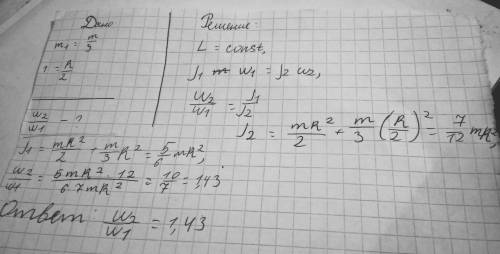 Дано
m₁ = m/3
r = R/2
ω₂/ω₁ - ?
Решение:
L = const,
J₁ ω₁ = J₂ ω₂,
ω₂/ω₁ = J₁/J₂
J₂ = mR²/2 + m/3 (R/2)² = 7/12 mR²,
J₁ = mR²/2 + m/3 R² = 5/6 mR²,
ω₂/ω₁ = 5mR² 12/6 7mR² = 10/7 = 1,43
Ответ: ω₂/ω₁ = 1,43